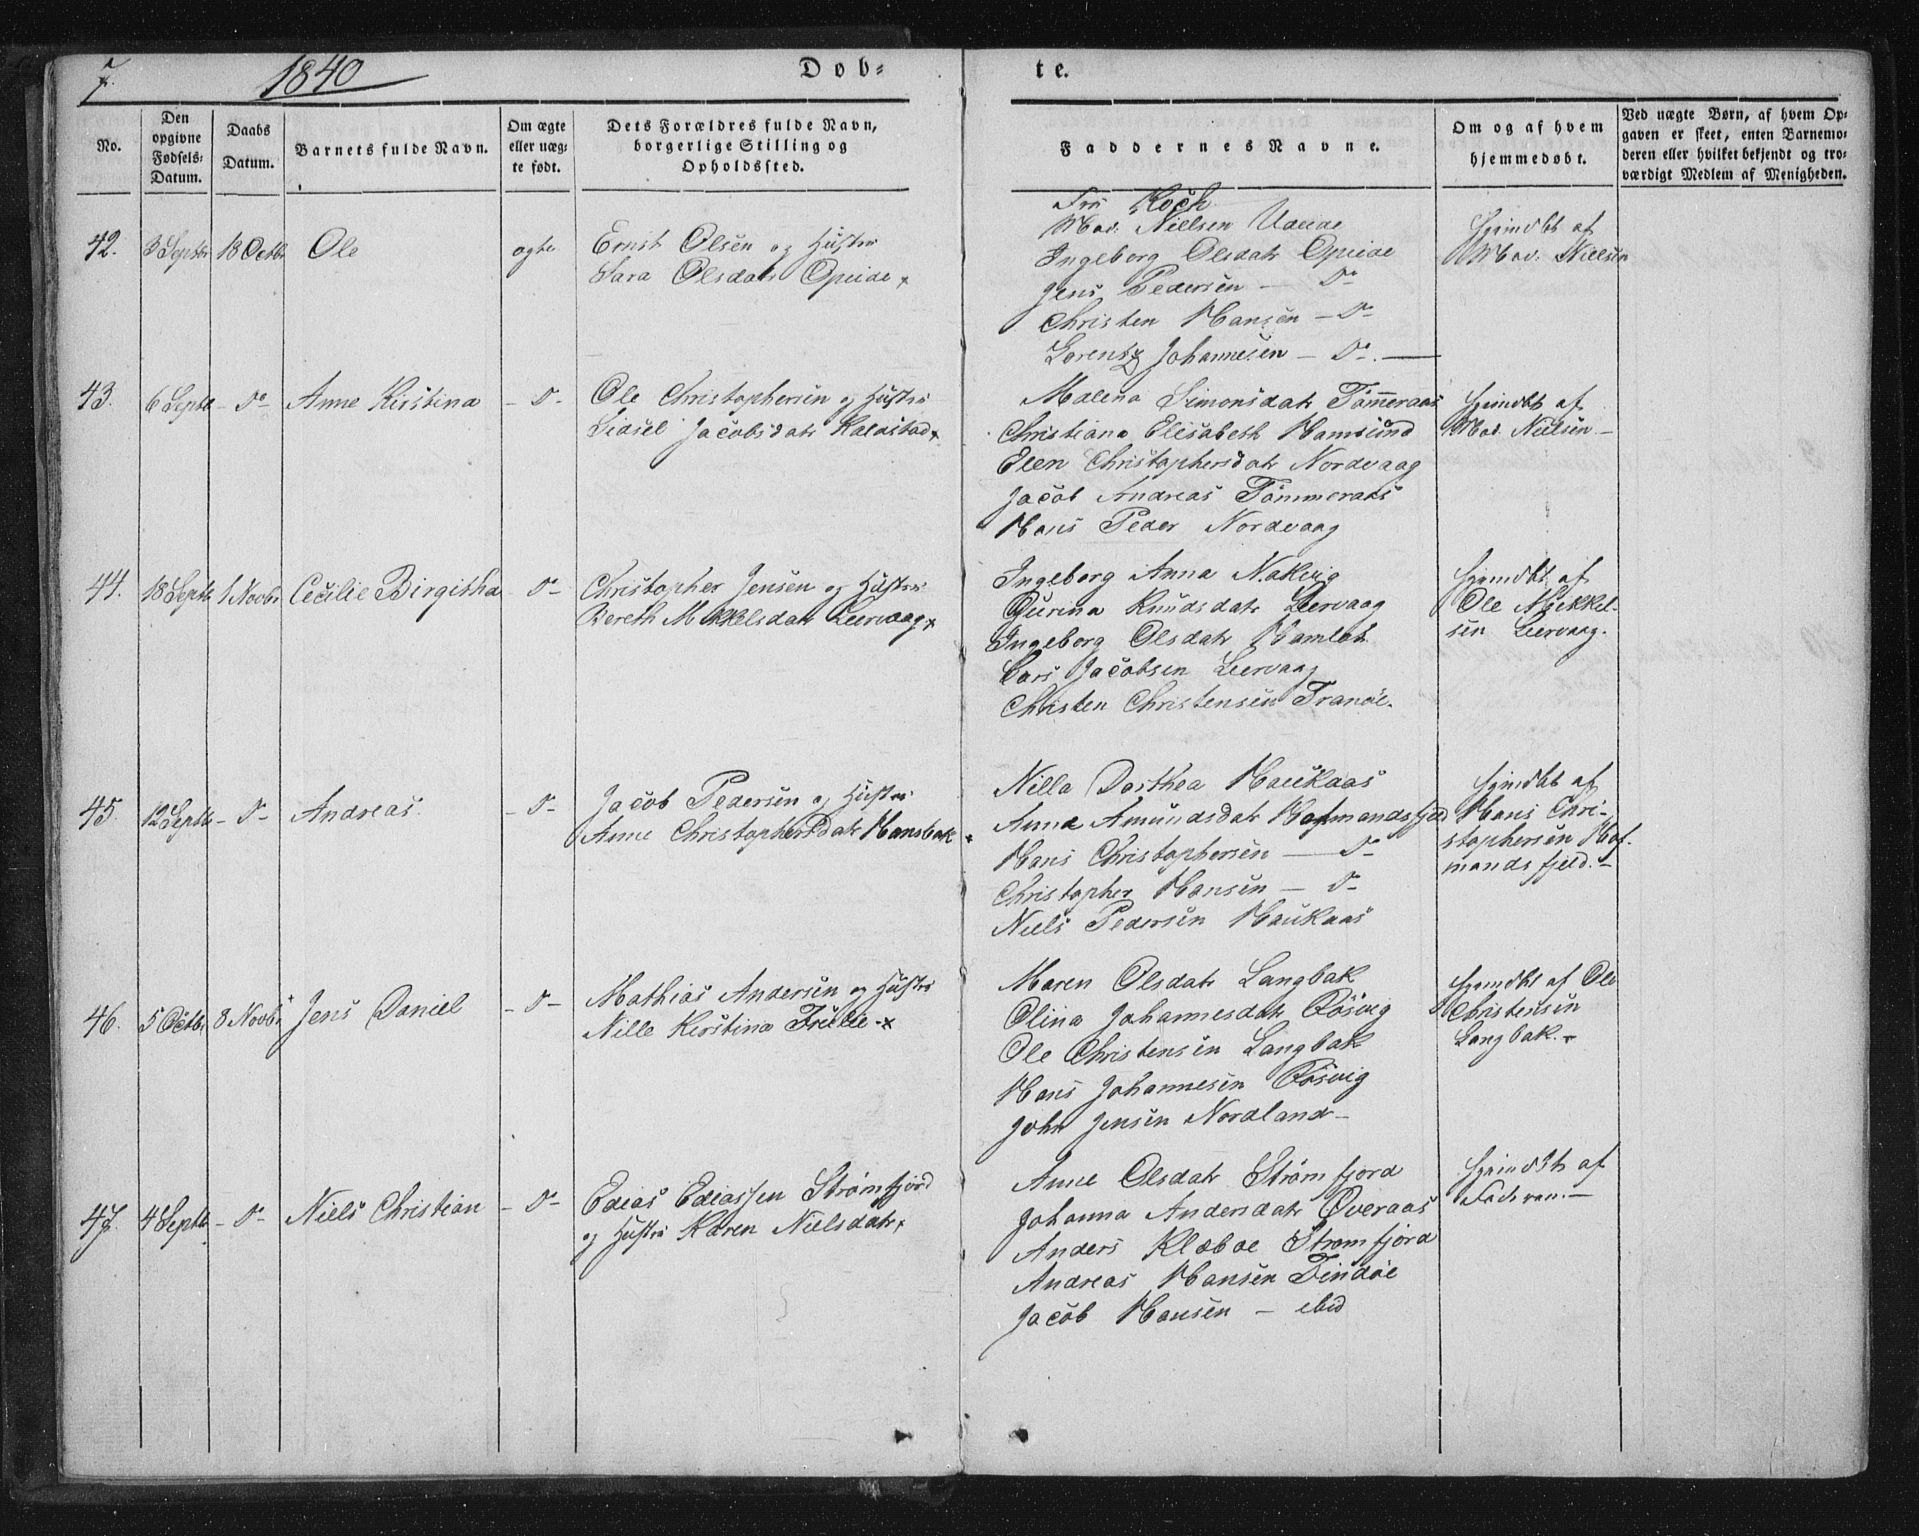 7. 1840 Dob= te.
No.
Den opgivne Fødsels= Datum.
Daabs Datum.
Barnets fulde Navn.
Om ægte eller uæg- te født.
Dets Forældres fulde Navn, borgerlige Stilling og Opholdssted.
Faddernes Navne.
Om og af hvem hjemmedøbt.
Ved uægte Børn, af hvem Op- gaven er skeet, enten Barnemo- deren eller hvilket bekjendt og tro- værdigt Medlem af Menigheden.
42. 3 Septbr 18 Octbr Ole ægte
Ernst Olsen og Hustru
Sara Olsdatr Opeide
Fru Koch
Mad. Nielsen
Ingeborg Olsdatr Opeide
Jens Pedersen — Do
Christen Hansen — Do
Lorentz Johannesen — Do. —
Hjemdbt af
Mad. Nielsen
43. 6 Septbr - Do Anne Kirstina - D-
Ole Christophersen og Hustru
Sidsel Jacobsdatr Kaldstad
Malena Simonsdatr Tømmeraas
Christiana Elisabeth Hamsund
Elen Christophersdatr Nordvaag
Jacob Andreas Tømmeraas
Hans Peder Nordvaag
Hjemdbt af
Mad. Nielsen —
44. 18 Septbr 1 Novbr Cecilie Birgitha - D-
Christopher Jensen og Hustru
Bereth Mikkelsdatr Leervaag
Ingeborg Anna Nakvig
Gurina Knudsdatr Leervaag
Ingeborg Olsdatr Hamlot
Lars Jacobsen Leervaag
Christen Christensen Tranøe.
Hjemdbt af
Ole Mikkel-
sen Leervaag.
45. 12 Septbr - D- Andreas. - D-
Jacob Pedersen og Hustru
Anne Christophersdatr Hansbak
Nilla Dorthea Haukaas
Anna Amundsdatr Hofmandsfjeld
Hans Christophersen — D-
Christopher Hansen — D-
Niels Pedersen Haukaas
Hjemdbt af
Hans Chri-
stophersen Hof-
mandsfjeld. —
46. 5 Octbr 8 Novbr Jens Daniel - D-
Mathias Andersen og Hustru
Nille Kirstina
Maren Olsdatr Langbak
Olina Johannesdatr Røsvig
Ole Christensen Langbak
Hans Johannesen Røsvig
John Jensen Nordland —
Hjemdbt af Ole
Christensen
Langbak. —
47. 4 Septbr - D- Niels Christian - D-
Edias Ediassen Strømfjord
og Hustru Karen Nielsdatr
Anne Olsdatr Strømfjord
Johanna Andersdatr Overaas
Anders Klæboe Strømfjord
Andreas Hansen Findøe
Jacob Hansen — ibid
Hjemdbt af
Faderen. —